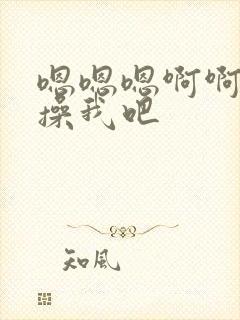 嗯嗯嗯啊啊
操我吧
知風